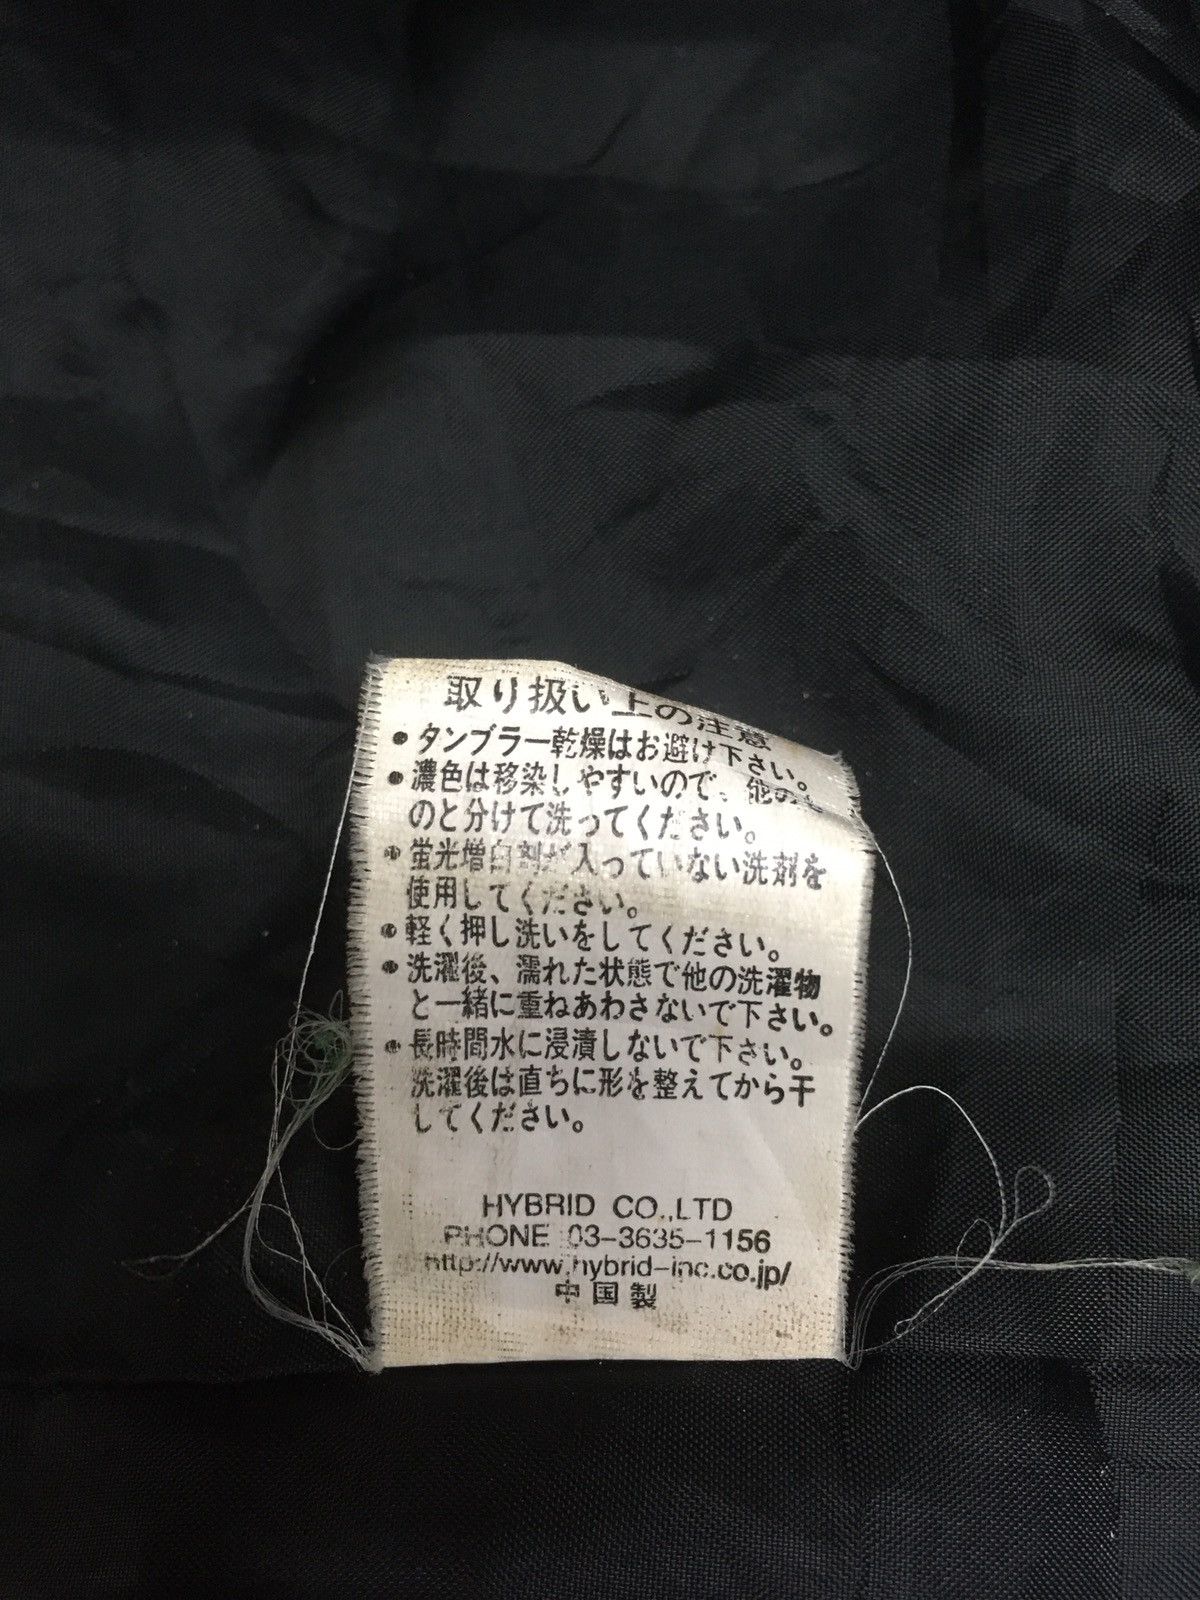 取り扱い上の注意
●タンブラー乾燥はお避け下さい。
●濃色は移染しやすいので、他のも
のと分けて洗ってください。
●蛍光増白剤が入っていない洗剤を
使用してください。
●軽く押し洗いをしてください。
●洗濯後、濡れた状態で他の洗濯物
と一緒に重ねあわさないで下さい。
●長時間水に浸漬しないで下さい。
洗濯後は直ちに形を整えてから干
してください。
HYBRID CO.,LTD
PHONE 03-3635-1156
http://www.hybrid-inc.co.jp/
中国製